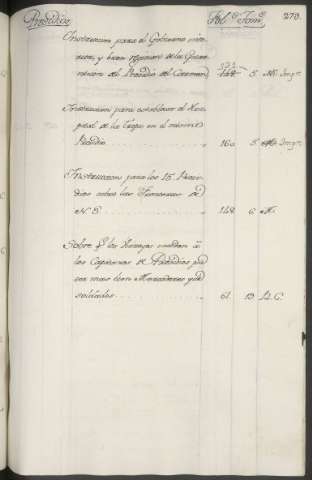 Presidios. Fol.s Tom.s 270.
Instruccion para el Gobierno
y buen regimen de la Guar-
nicion del Presidio del Carmen 148. 5. Impr.
Instruccion para establecer el Hos-
pital de la Tropa en el mismo
Presidio 160. 5. Impr.
Instruccion para los 15 Presi-
dios sobre las Fronteras de
N. E. 148. 6.
Sobre q.e
los Capitanes de Presidios
ser mas bien Mercaderes q.e
soldados 61. 13. C.